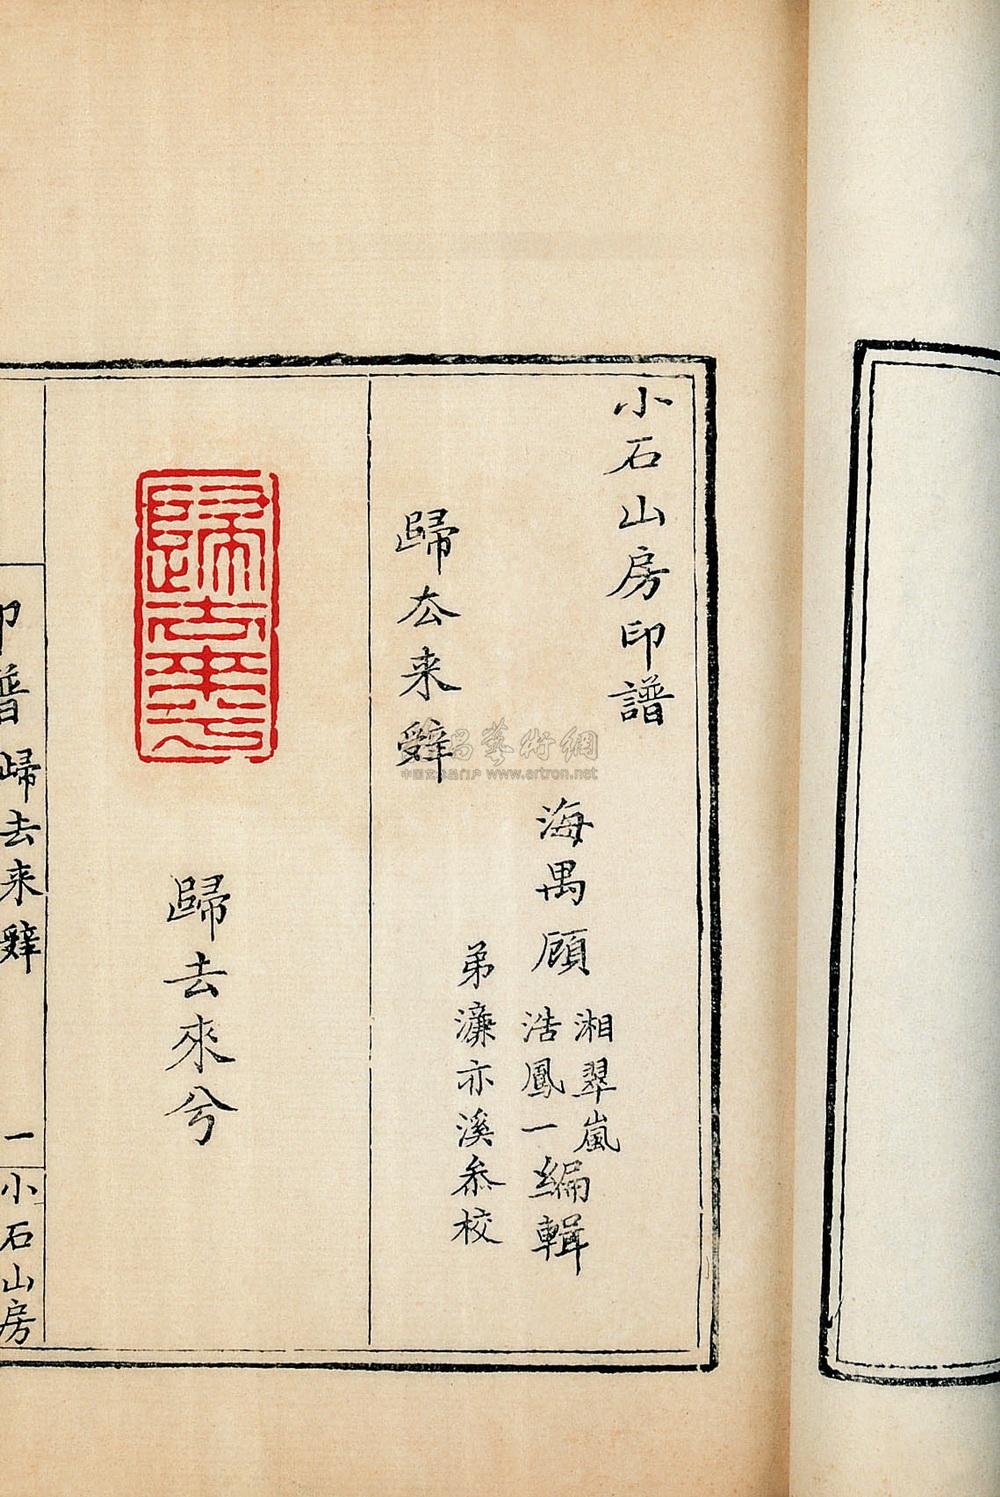 小石山房印譜
海禺顧湘翠嵐
浩鳳一編輯
弟濂亦溪叅校
歸去来辭
歸去來兮
歸去來兮
印譜 歸去来辭 一 小石山房
藝術網
www.artron.net